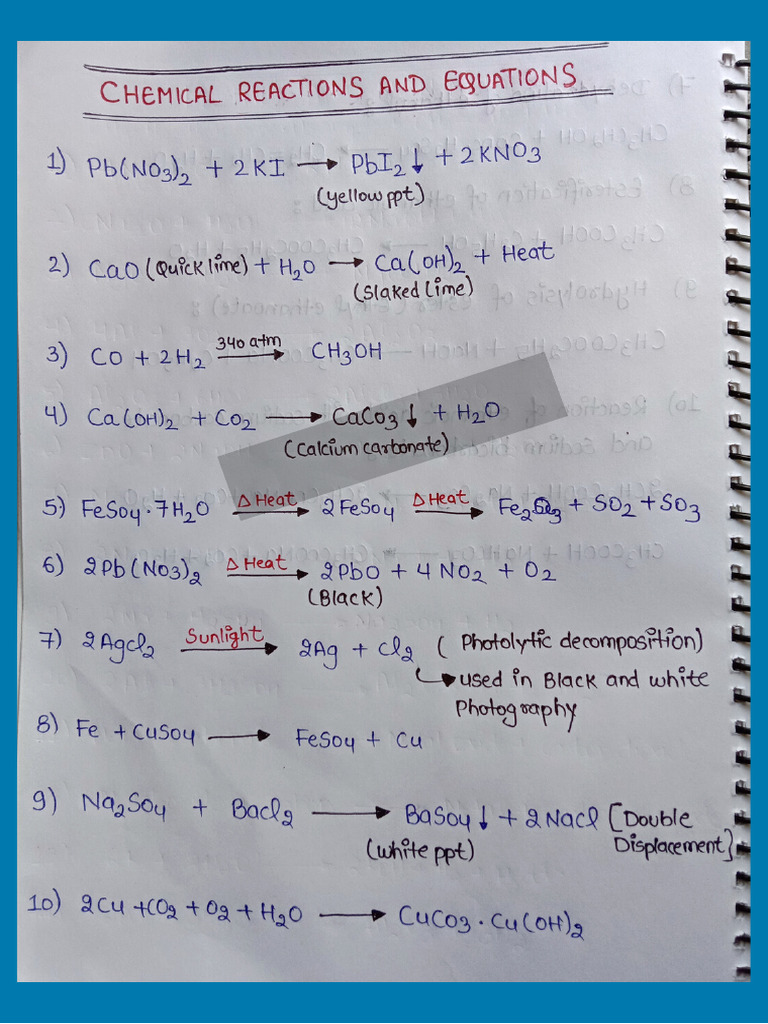 CHEMICAL REACTIONS AND EQUATIONS
1) Pb(NO3)2 + 2KI → PbI2 ↓ + 2KNO3
(yellow ppt)
2) CaO (Quick lime) + H2O → Ca(OH)2 + Heat
(Slaked lime)
3) CO + 2H2 340 atm → CH3OH
4) Ca(OH)2 + CO2 → CaCO3 ↓ + H2O
(Calcium carbonate)
5) FeSO4·7H2O Δ Heat → 2FeSO4 Δ Heat → Fe2O3 + SO2 + SO3
6) 2Pb(NO3)2 Δ Heat → 2PbO + 4NO2 + O2
(Black)
7) 2AgCl2 Sunlight → 2Ag + Cl2 (Photolytic decomposition)
↳ used in Black and white
Photography
8) Fe + CuSO4 → FeSO4 + Cu
9) Na2SO4 + BaCl2 → BaSO4 ↓ + 2NaCl [Double
(white ppt) Displacement]
10) 2Cu + CO2 + O2 + H2O → CuCO3·Cu(OH)2